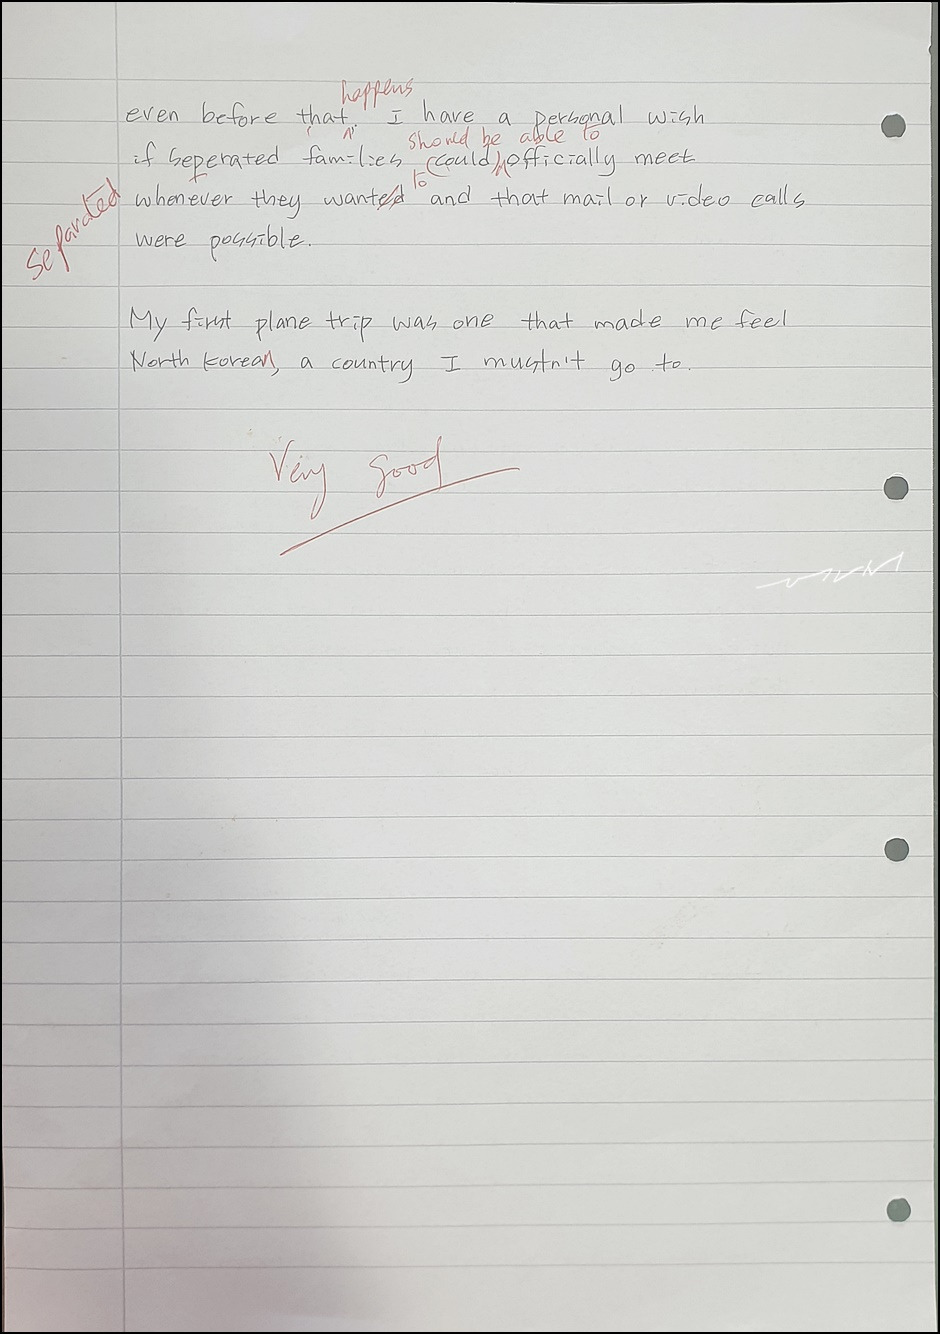 happens
even before that. I have a personal wish
should be able to
if seperated families (could) officially meet
to
whenever they wanted and that mail or video calls
separated
were possible.
My first plane trip was one that made me feel
North Korean, a country I mustn't go to.
Very good